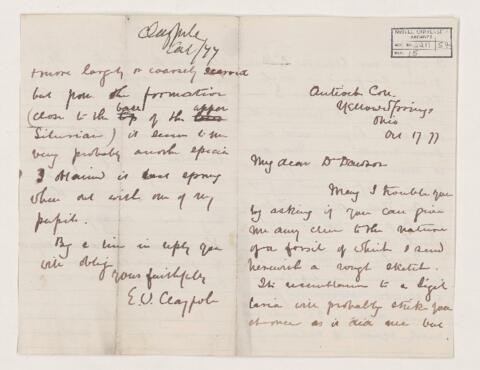 Claypole
Oct/77
& more largely or coarsely
but from the formation
(close to the base of the upper
Silurian) it seems to me
very probably another species
I obtained it last spring
when out with one of my
pupils.
By a line in reply you
will oblige
Yours faithfully
E.W. Claypole
McGILL UNIVERSITY
ARCHIVES
ACC. NO. 2211 54
REF. 15
Antioch Coll.
Yellow Springs
Ohio
Oct 17 77
My dear Dr Dawson
May I trouble you
by asking if you can give
me any clue to the nature
of a fossil of which I send
herewith a rough sketch.
Its resemblance to a Sigil-
laria will probably strike you
at once as it did me but